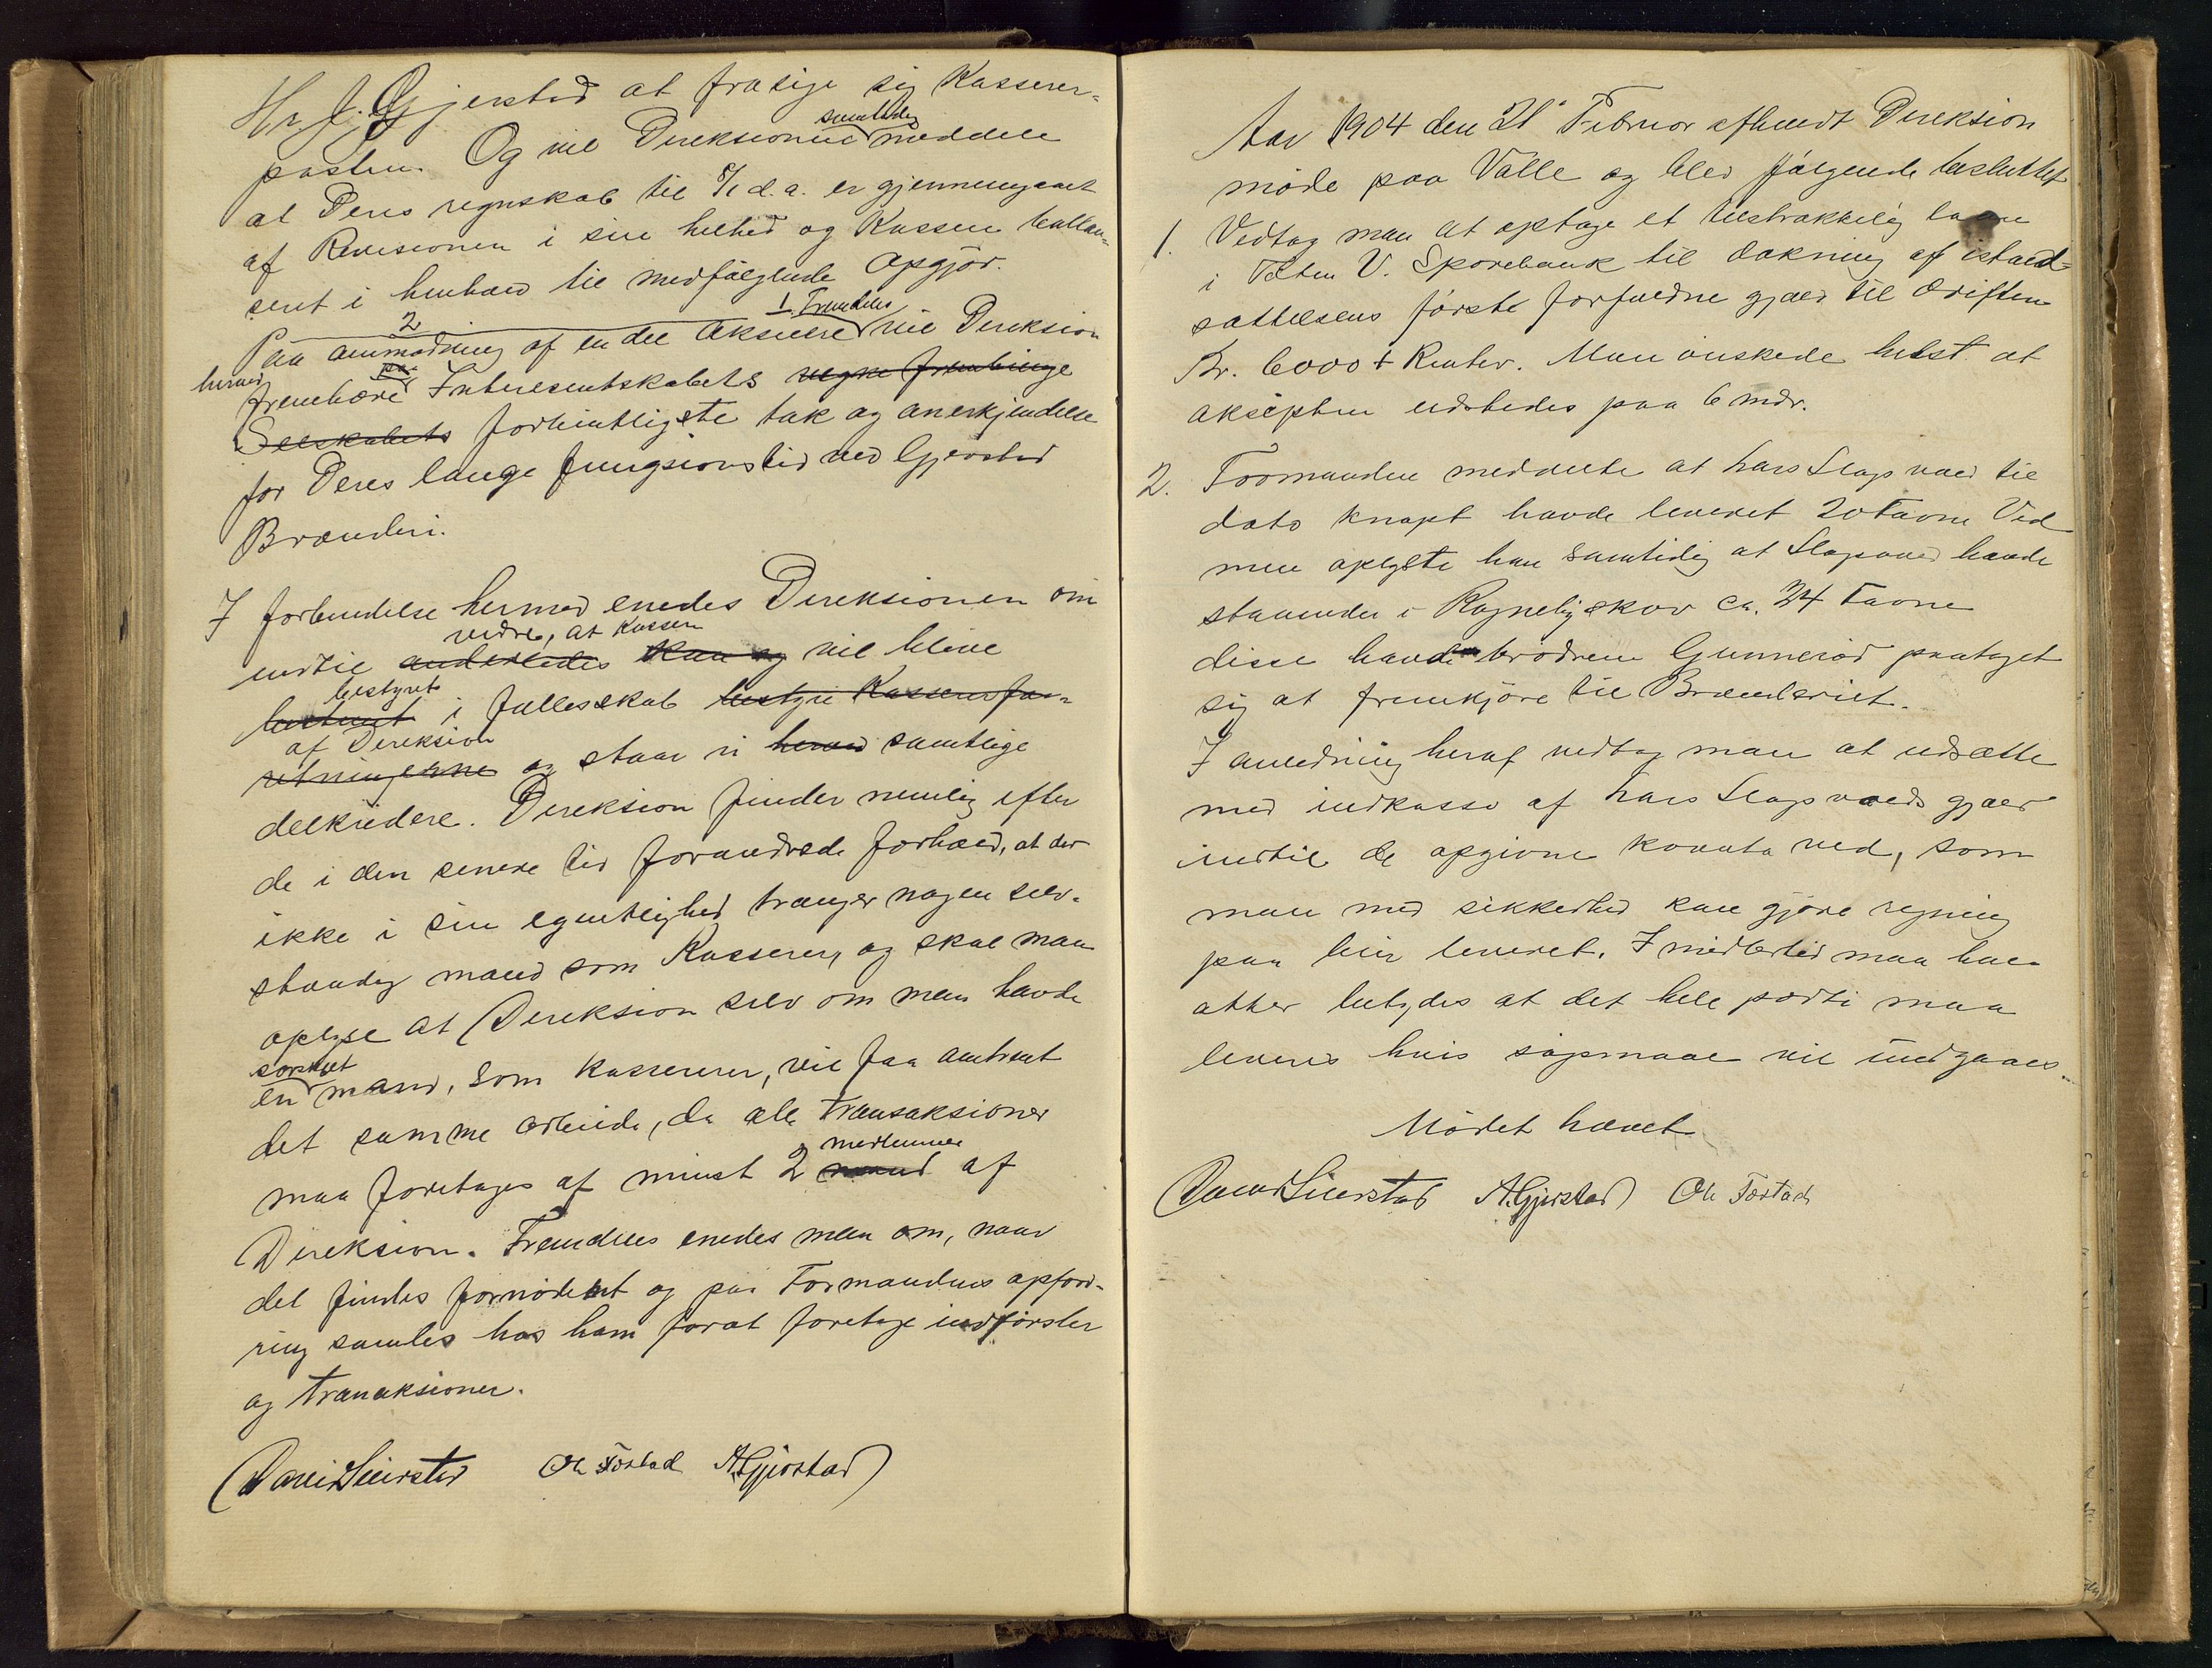 Hr. J. Gjerstad at frasige sig Kasserer-
posten. Og vil Direksionen samtidig meddele
at Deres regnskab til d.a. er gjennemgaaet
af Revisionen i sin helhed og Kassen ballan-
seret i henhold til medfølgende Opgjør.
2 1. Fremdeles
Paa anmodning af en del Aksiere vil Direksion
herved frembære Interesentskabets vegne frembringe
Selskabets forbintligste tak og anerkjendelse
for Deres lange fungsionstid ved Gjerstad
Brænderi.
I forbindelse hermed enedes Direksionen om
vidre, at Kassen
indtil anderledes kan og vil blive
bestyret
bestemt i fællesskab bestyre Kassens for-
af Direksion
retningerne og staar vi herved samtlige
delkredere. Direksion finder nemlig efter
de i den senere tid forandrede forhold, at der
ikke i sin egentlighed trænger nogen selv-
stændig mand som Kasserer, og skal man
oplyse at Direksion selv om man havde
særskilt
en mand, som kasserer, vil faa omtrent
det samme arbeide, da alle transaksioner
medlemmer
maa foretages af minst 2 mand af
Direksion. Fremdeles enedes man om, naar
det findes fornødent og paa Formandens opford-
ring samles hos ham forat foretage indførsler
og tranaksioner.
Ole Forstad A. Gjerstad
Aar 1904 den 21' Februar afholdt Direksion
møde paa Valle og blev følgende besluttet
1. Vedtog man at optage et tilstrækkelig laan
i Toten V. Sparebank til dækning af istand-
sættelsens første forfaldne gjæld til Driften
Kr. 6000 + Renter. Man ønskede helst at
aksepten udstedes paa 6 mdr.
2. Formanden meddelte at Lars Slagsvold til
dato knapt havde leveret 20 Favne Ved
men oplyste han samtidig at Slagsvold havde
staaende i Rognebyskov ca. 24 Favne
disse havde brødrene Gunnerød paataget
sig at fremkjøre til Brænderiet.
I anledning heraf vedtog man at udsætte
med indkasso af Lars Slagsvolds gjæld
indtil de opgivne kvanta ved, som
man med sikkerhed kan gjøre regning
paa blir leveret. Imidlertid maa han
atter betydes at det hele parti maa
leveres hvis søgsmaal vil undgaaes.
Mødet hævet
A. Gjerstad Ole Forstad